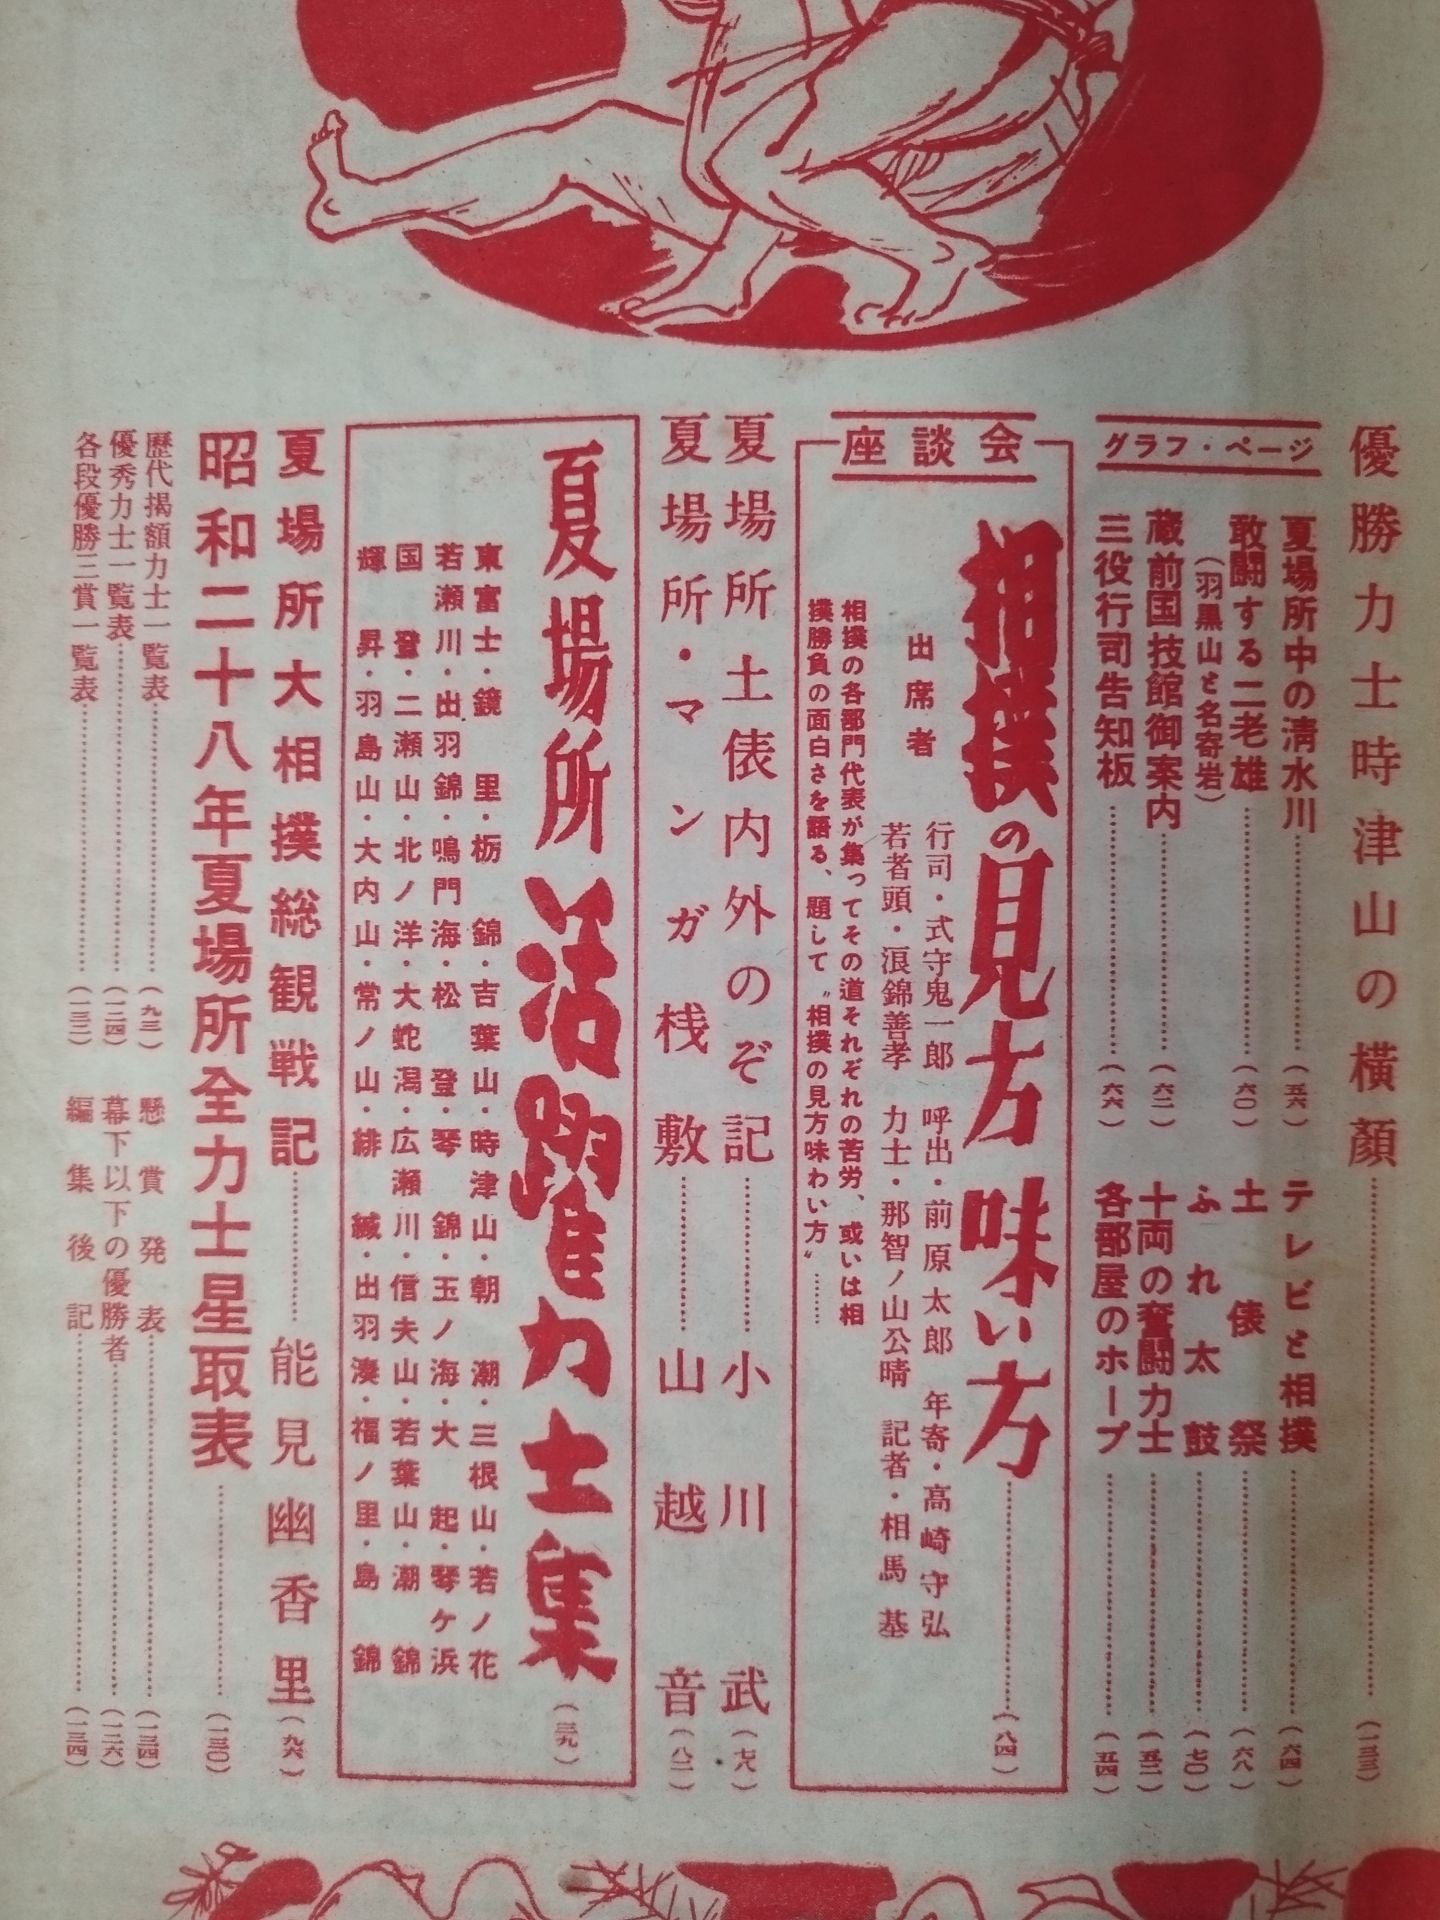 優勝力士時津山の横顔……………(一三三)
グラフ・ページ
夏場所中の清水川……………(五六)
敢闘する二老雄……………(六〇)
(羽黒山と名寄岩)
蔵前国技館御案内……………(六二)
三役行司告知板……………(六六)
テレビと相撲……………(六四)
土俵祭……………(六八)
ふれ太鼓……………(七〇)
十両の奮闘力士……………(五二)
各部屋のホープ……………(五四)
座談会
相撲の見方味い方……………(八四)
出席者
行司・式守鬼一郎 呼出・前原太郎 年寄・高崎守弘
若者頭・浪錦善孝 力士・那智ノ山公晴 記者・相馬基
相撲の各部門代表が集ってその道それぞれの苦労、或いは相
撲勝負の面白さを語る、題して〝相撲の見方味わい方〟……
夏場所土俵内外のぞ記……………小川武(七八)
夏場所・マンガ桟敷……………山越音(八二)
夏場所活躍力士集(三九)
東富士・鏡里・栃錦・吉葉山・時津山・朝潮・三根山・若ノ花
若瀬川・出羽錦・鳴門海・松登・琴錦・玉ノ海・大起・琴ケ浜
国登・二瀬山・北ノ洋・大蛇潟・広瀬川・信夫山・若葉山・潮錦
輝昇・羽島山・大内山・常ノ山・緋縅・出羽湊・福ノ里・島錦
夏場所大相撲総観戦記……………能見幽香里(九六)
昭和二十八年夏場所全力士星取表……………(一三〇)
歴代掲額力士一覧表……………(九三)
優秀力士一覧表……………(一二四)
各段優勝三賞一覧表……………(一三二)
懸賞発表……………(一三四)
幕下以下の優勝者……………(一二六)
編集後記……………(一三四)